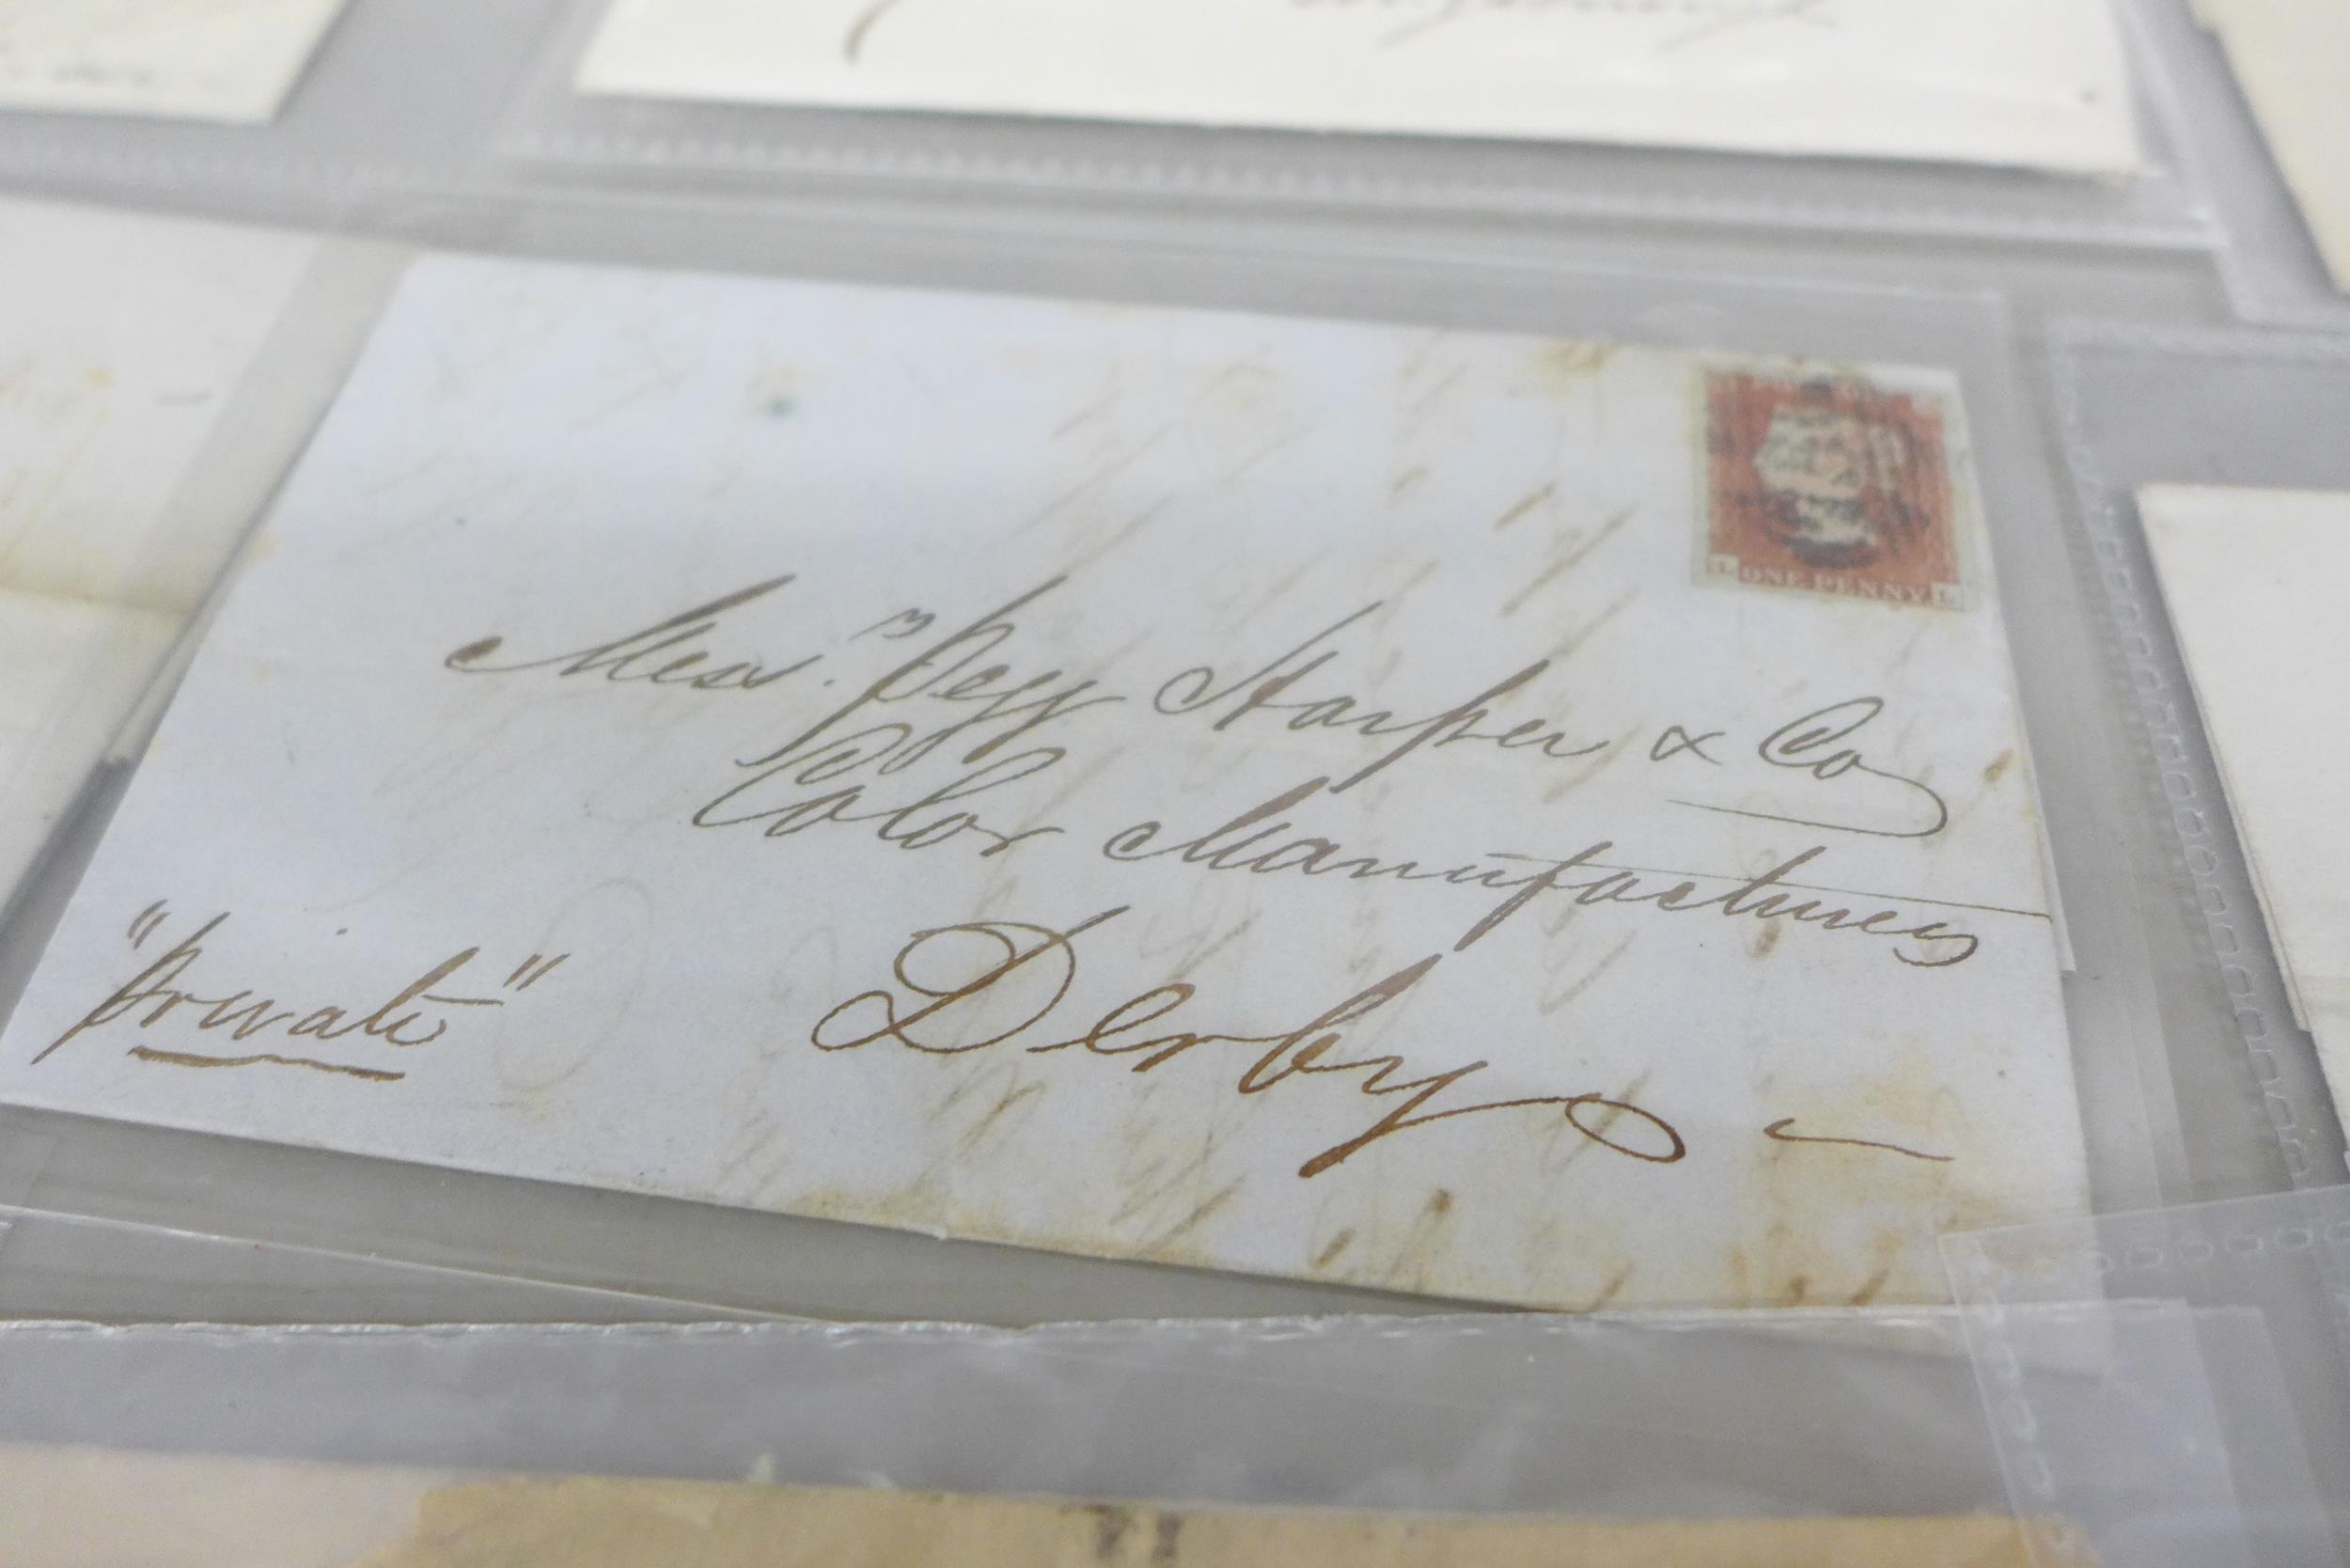 ONE PENNY L
Messrs Pegg Harper & Co
Color Manufacturers
Derby
"Private"